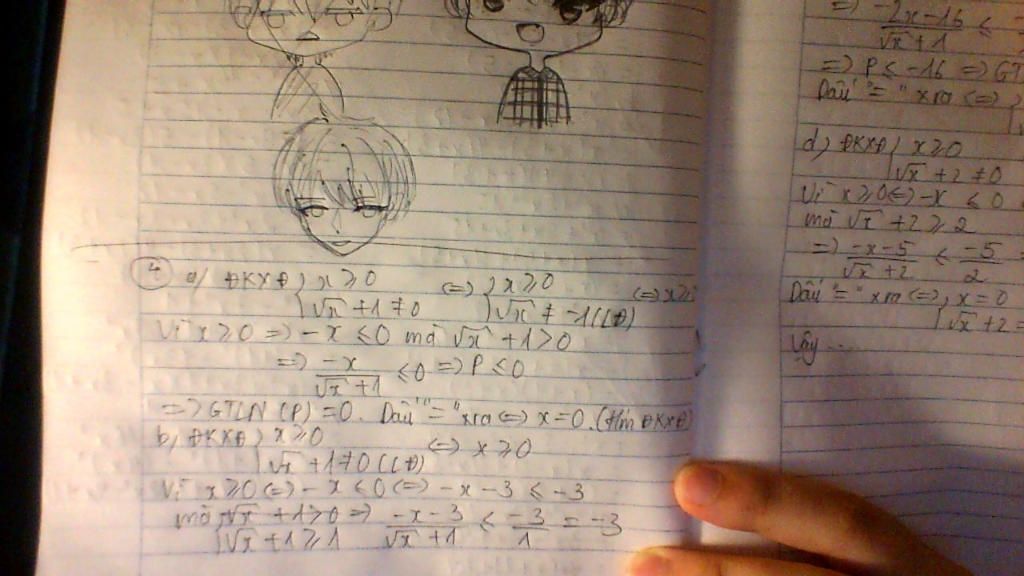 4 a) ĐKXĐ { x ≥ 0 <=> { x ≥ 0 <=> x ≥
√x + 1 ≠ 0 √x ≠ -1 (LĐ)
Vì x ≥ 0 => -x ≤ 0 mà √x + 1 > 0
=> -x / (√x + 1) ≤ 0 => P ≤ 0
=> GTLN (P) = 0. Dấu "=" xra <=> x = 0. (t/m ĐKXĐ)
b) ĐKXĐ { x ≥ 0 <=> x ≥ 0
√x + 1 ≠ 0 (LĐ)
Vì x ≥ 0 <=> -x ≤ 0 <=> -x - 3 ≤ -3
mà { √x + 1 > 0 => (-x - 3) / (√x + 1) ≤ -3/1 = -3
√x + 1 ≥ 1
=> (-2x - 16) / (√x + 1) ≤
=> P ≤ -16 => GT
Dấu "=" xra <=>
d) ĐKXĐ { x ≥ 0
√x + 2 ≠ 0
Vì x ≥ 0 <=> -x ≤ 0
mà √x + 2 ≥ 2
=> (-x - 5) / (√x + 2) ≤ -5/2
Dấu "=" xra <=> { x = 0
√x + 2 =
Vậy ...